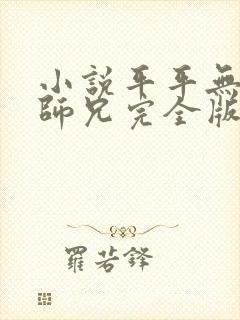 小說平平無
師兄完全版
羅若鋒